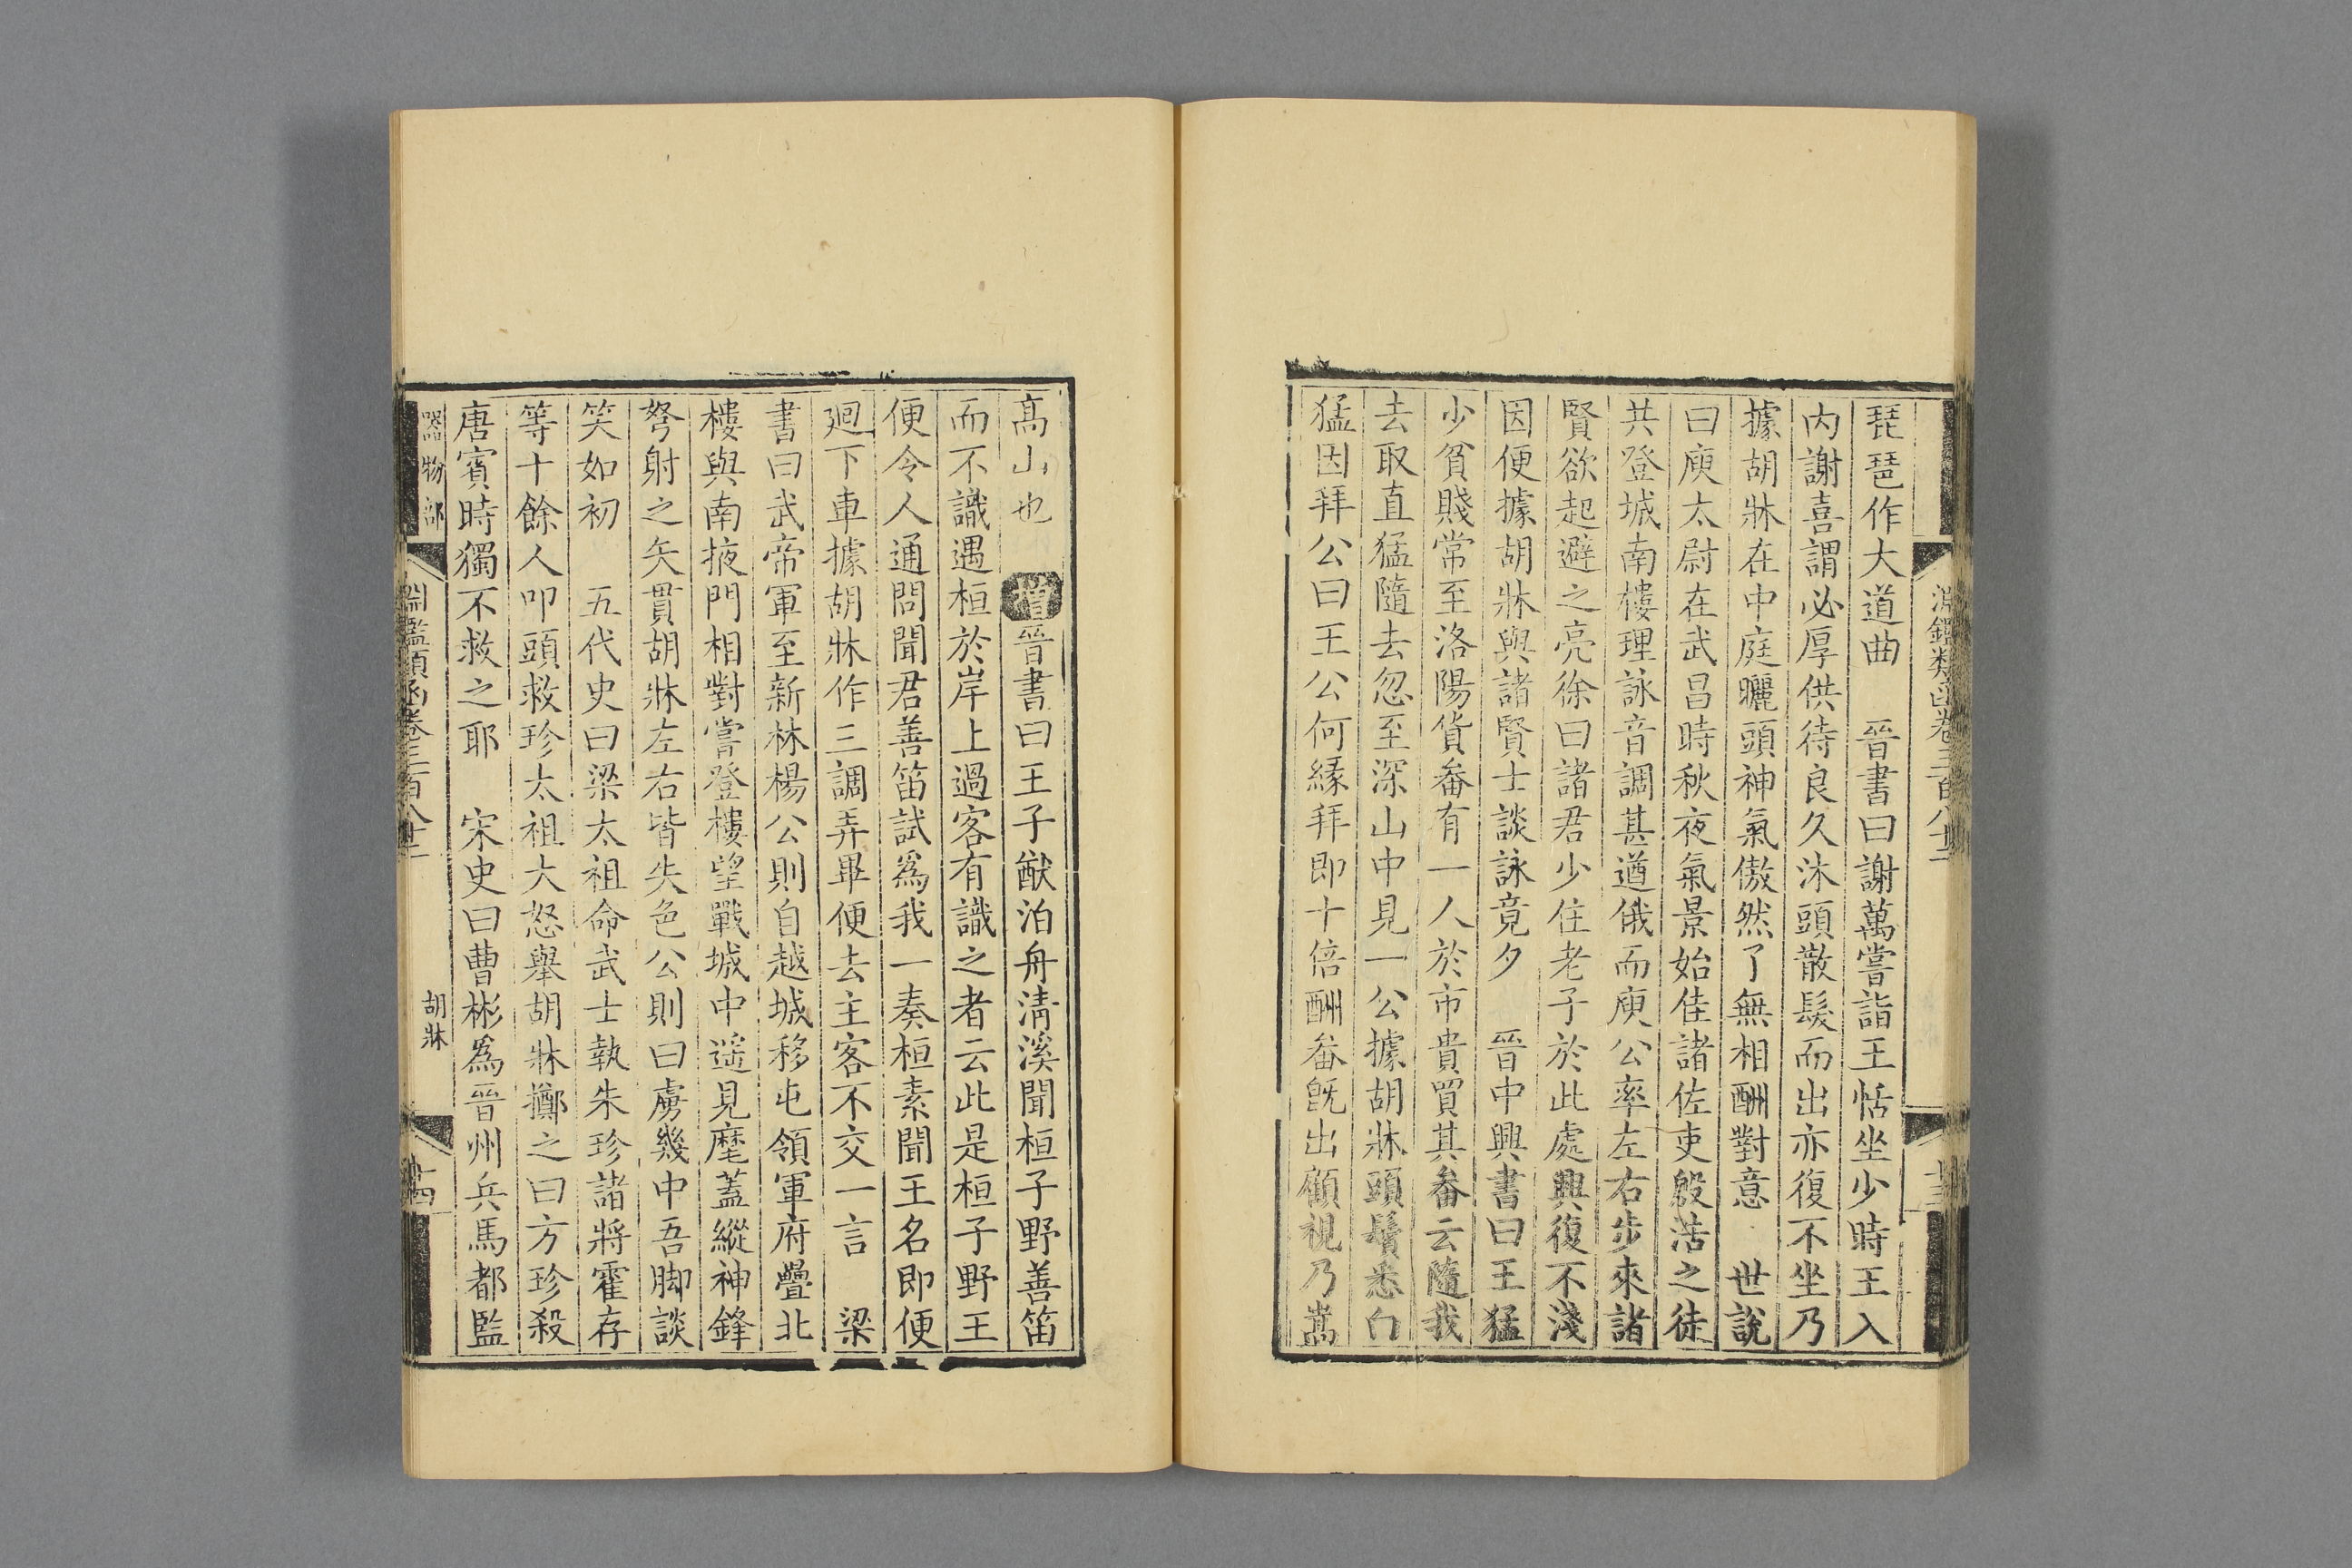 琵琶作大道曲　晉書曰謝萬嘗詣王恬坐少時王入
內謝喜謂必厚供待良久沐頭散髮而出亦復不坐乃
據胡牀在中庭曬頭神氣傲然了無相酬對意　世說
曰庾太尉在武昌時秋夜氣景始佳諸佐吏殷浩之徒
共登城南樓理詠音調甚遒俄而庾公率左右步來諸
賢欲起避之亮徐曰諸君少住老子於此處興復不淺
因便據胡牀與諸賢士談詠竟夕　晉中興書曰王猛
少貧賤常至洛陽貨畚有一人於市貴買其畚云隨我
去取直猛隨去忽至深山中見一公據胡牀頭鬢悉白
猛因拜公曰王公何緣拜即十倍酬畚旣出顧視乃嵩
高山也　增晉書曰王子猷泊舟淸溪聞桓子野善笛
而不識遇桓於岸上過客有識之者云此是桓子野王
便令人通問聞君善笛試爲我一奏桓素聞王名即便
廻下車據胡牀作三調弄畢便去主客不交一言　梁
書曰武帝軍至新林楊公則自越城移屯領軍府壘北
樓與南掖門相對嘗登樓望戰城中遥見麾蓋縱神鋒
弩射之矢貫胡牀左右皆失色公則曰虜幾中吾脚談
笑如初　五代史曰梁太祖命武士執朱珍諸將霍存
等十餘人叩頭救珍太祖大怒舉胡牀擲之曰方珍殺
唐賓時獨不救之耶　宋史曰曹彬爲晉州兵馬都監
器物部
淵鑑類函卷三百八十二
胡牀
十四